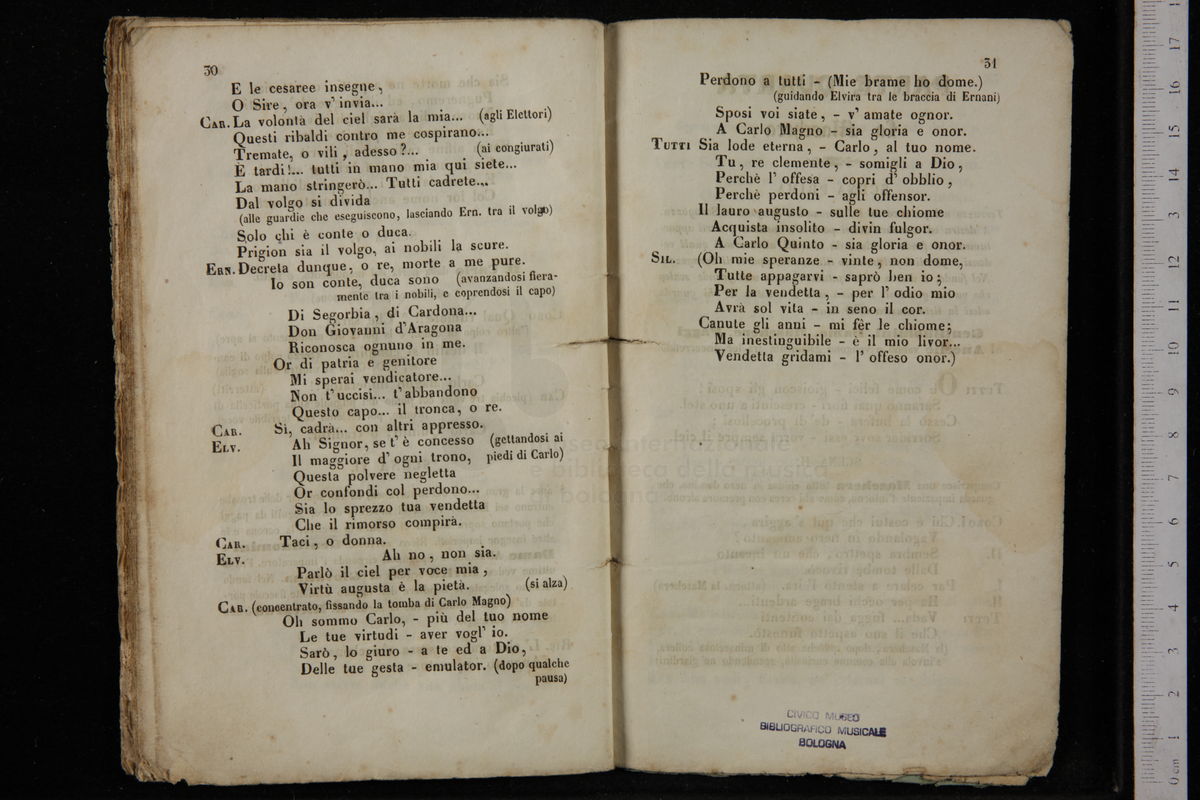 30
E le cesaree insegne,
O Sire, ora v' invia...
CAR. La volontà del ciel sarà la mia... (agli Elettori)
Questi ribaldi contro me cospirano...
Tremate, o vili, adesso?... (ai congiurati)
È tardi!... tutti in mano mia qui siete...
La mano stringerò... Tutti cadrete...
Dal volgo si divida
(alle guardie che eseguiscono, lasciando Ern. tra il volgo)
Solo chi è conte o duca.
Prigion sia il volgo, ai nobili la scure.
ERN. Decreta dunque, o re, morte a me pure.
Io son conte, duca sono (avanzandosi fiera-
mente tra i nobili, e coprendosi il capo)
Di Segorbia, di Cardona...
Don Giovanni d'Aragona
Riconosca ognuno in me.
Or di patria e genitore
Mi sperai vendicatore...
Non t' uccisi... t' abbandono
Questo capo... il tronca, o re.
CAR. Sì, cadrà... con altri appresso.
ELV. Ah Signor, se t' è concesso (gettandosi ai
Il maggiore d' ogni trono, piedi di Carlo)
Questa polvere negletta
Or confondi col perdono...
Sia lo sprezzo tua vendetta
Che il rimorso compirà.
CAR. Taci, o donna.
ELV. Ah no, non sia.
Parlò il ciel per voce mia,
Virtù augusta è la pietà. (si alza)
CAR. (concentrato, fissando la tomba di Carlo Magno)
Oh sommo Carlo, - più del tuo nome
Le tue virtudi - aver vogl' io.
Sarò, lo giuro - a te ed a Dio,
Delle tue gesta - emulator. (dopo qualche
pausa)
31
Perdono a tutti - (Mie brame ho dome.)
(guidando Elvira tra le braccia di Ernani)
Sposi voi siate, - v' amate ognor.
A Carlo Magno - sia gloria e onor.
TUTTI Sia lode eterna, - Carlo, al tuo nome.
Tu, re clemente, - somigli a Dio,
Perchè l' offesa - copri d' obblio,
Perchè perdoni - agli offensor.
Il lauro augusto - sulle tue chiome
Acquista insolito - divin fulgor.
A Carlo Quinto - sia gloria e onor.
SIL. (Oh mie speranze - vinte, non dome,
Tutte appagarvi - saprò ben io;
Per la vendetta, - per l' odio mio
Avrà sol vita - in seno il cor.
Canute gli anni - mi fêr le chiome;
Ma inestinguibile - è il mio livor...
Vendetta gridami - l' offeso onor.)
CIVICO MUSEO
BIBLIOGRAFICO MUSICALE
BOLOGNA